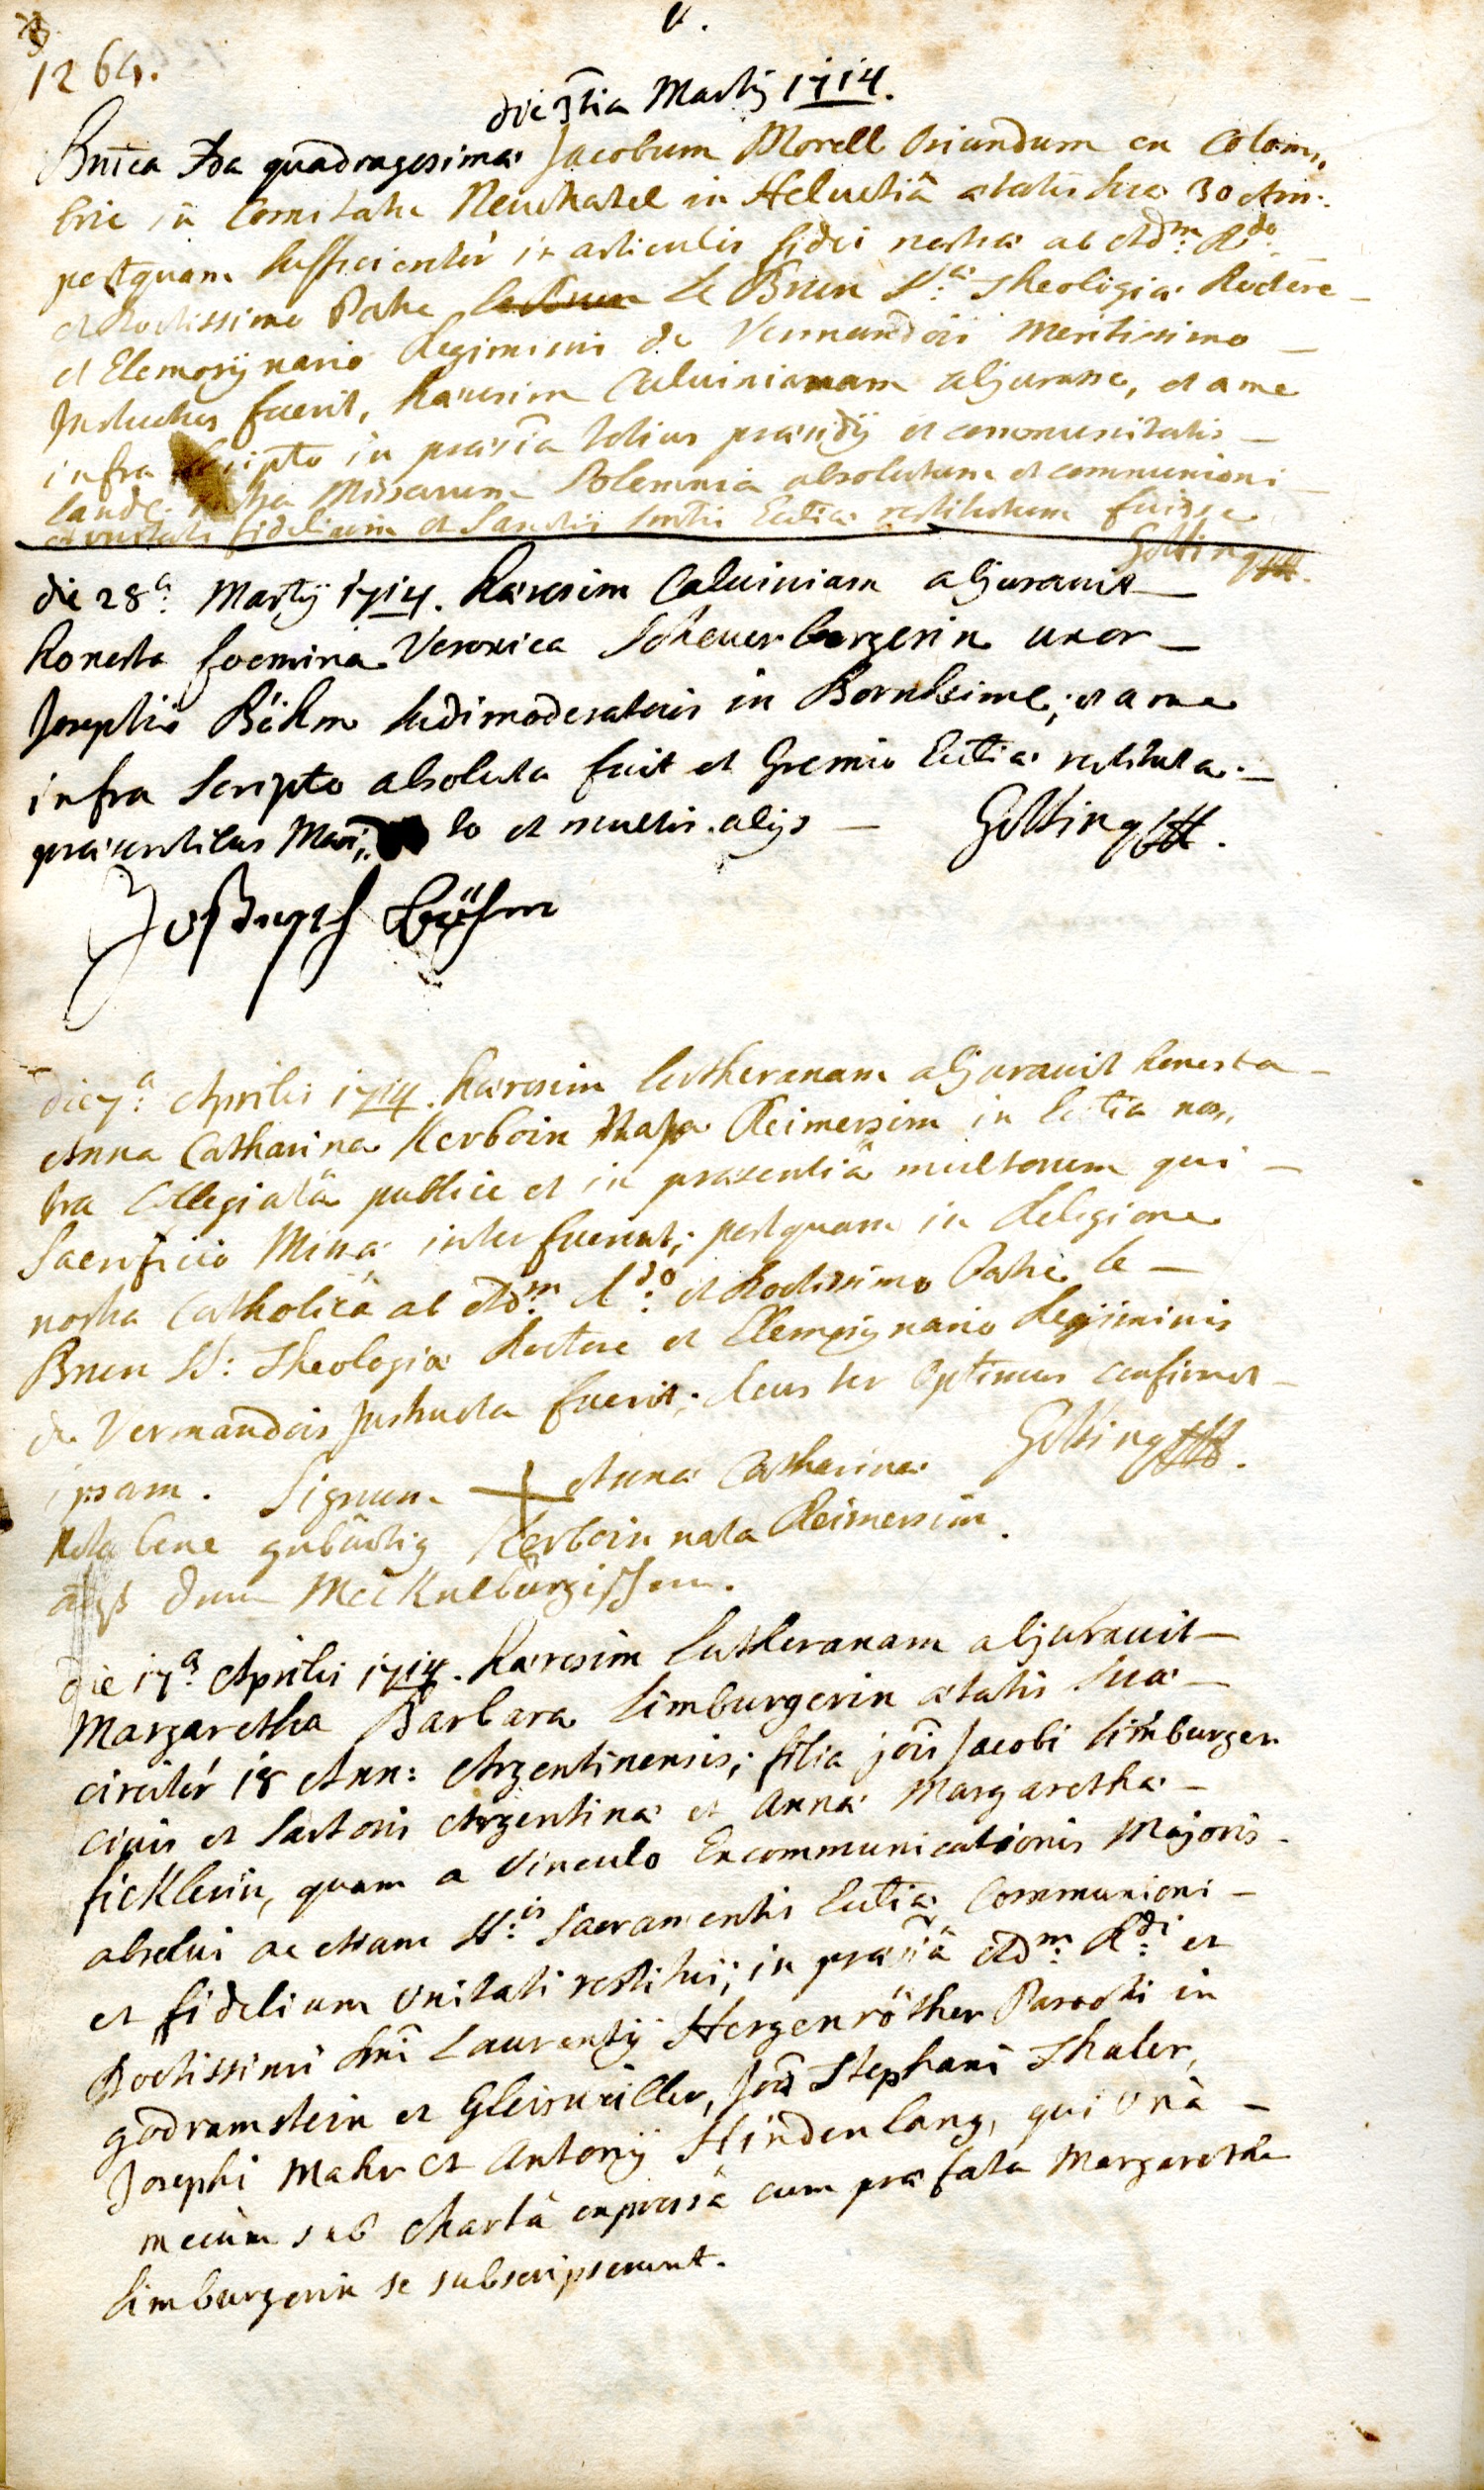 V.
1264.
die 3tia Martij 1714.
Dnica 3a quadragesimæ Jacobum Morell Oriundum ex Colom„
brie in Comitatu Neuchatel in Helvetiâ ætatis suæ 30 Ann:
postquam sufficientèr in articulis fidei nostræ ab Adm: Rdo
et Doctissimo Patre Le Brun S:æ Theologiæ Doctore
et Elemosÿnario Regiminis de Vermandois meritissimo
Instructus fuerit, hæresim Calvinianam abjurasse, et a me
infra scripto in præsĩa totius præsidÿ et communitatis
Landc: intra Missarum Solemnia absolutum et communioni
et unitati fidelium et Sanctis Eccliæ restitutum fuisse
Götting
die 28a: Martÿ 1714. hæresim Calviniam abjuravit
honesta foemina Veronica Scheuerburgerin uxor
Josephi Böhm ludimoderatoris in Bornheim; et a me
infra scripto absoluta fuit et Gremio Eccliæ restituta.
præsentibus Mari„ to et multis alÿs Götting
Joseph Böhm
die 7a: Aprilis 1714. hæresim lutheranam abjuravit honesta
Anna Catharina Kerboin Nata Reimersin in Ecclia nos„
tra Collegiatâ publice et in præsentiâ multorum qui
Sacrificio Missæ interfuerunt; postquam in Religione
nostra Catholicâ ab Adm: R:do et Doctissimo Patre le
Brun SS: Theologiæ Doctore et Elemosÿnario Regiminis
de Vermandois Instructa fuerit; deus ter Optimus confirmet
ipsam. Signum + Anna Catharina Götting
Nota bene gebürtig Kerboin nata Reimersin.
auß dem Meckhelburgischen.
die 17a Aprilis 1714. hæresim lutheranam abjuravit
Margaretha Barbara Limburgerin ætatis suæ
circitèr 18 Ann: Argentinensis; filia jõis Jacobi Limburger
civis et Sartoris Argentinæ et Annæ Margarethæ
ficklerin, quam a Vinculo Excommunicationis Majoris
absolui ac etiam SS:is Sacramentis Eccliæ Communioni
et fidelium Unitati restitui; in præsĩâ Adm: R:di et
Doctissimi dñi Laurentÿ Hergenröther Parochi in
godramstein et Gleisweiller, Jõis Stephani Thaler,
Josephi Mahr et Antonÿ Hindenlang, qui Unà
mecum sub Chartâ expressâ cum præfata Margaretha
Limburgerin se subscripserunt.